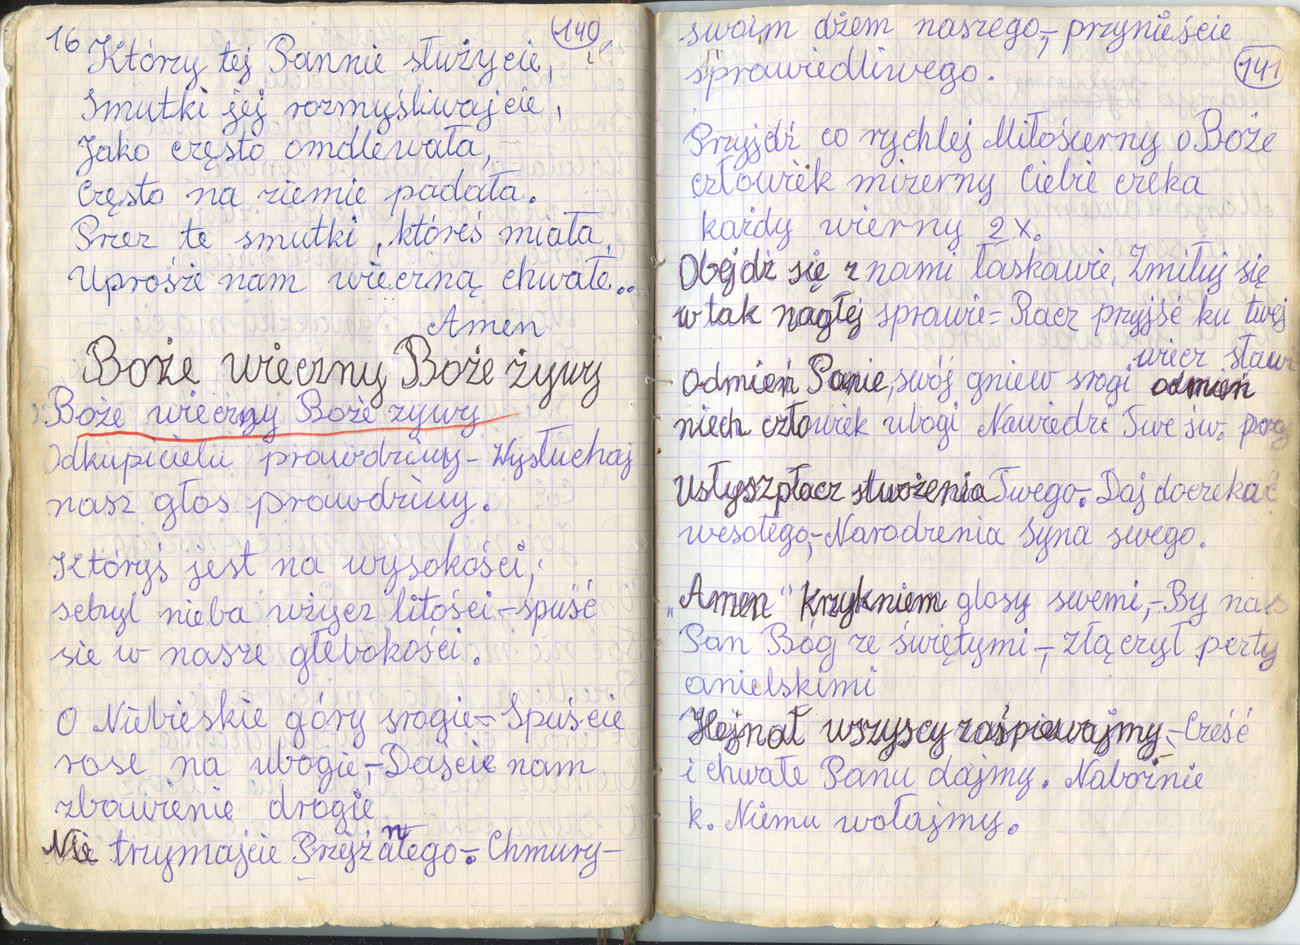 16
140
Którzy tej Pannie służycie,
Smutki jej rozmyśliwajcie,
Jako często omdlewała,
często na ziemie padała.
Przez te smutki, któreś miała,
Uprośże nam wieczną chwałe..
Amen
Boże wieczny Boże żywy
Boże wieczny Boże żywy
Odkupicielu prawdziwy – Wysłuchaj
nasz głos prawdziwy.
Któryś jest na wysokości,
schyl nieba użycz litości, – spuść
sie w nasze głebokości.
O Niebieskie góry srogie – Spuśćcie
rose na ubogie, – Dajcie nam
zbawienie drogie
Nie trzymajcie Przejżanego –. Chmury –
n
swoim dżem naszego, – przynieście
sprawiedliwego.
141
Przyjdź co rychlej Miłościerny o Boże
człowiek mizerny Ciebie czeka
każdy wierny 2 x.
Obejdź się z nami łaskawie, Zmiłuj się
w tak nagłej sprawie – Racz przyjść ku twej
wiecz sławi
Odmień Panie, swój gniew srogi odmień
niech człowiek ubogi Nawiedzi Twe św. prog
Usłysz płacz stwożenia Twego –. Daj doczekać
wesołego, – Narodzenia Syna swego.
„Amen" krzykniem glosy swemi, – By nas
Pan Bog ze świętymi –, złączył perty
anielskimi
Hejnał wszyscy zaśpiewajmy, – Cześć
i chwałe Panu dajmy. Nabożnie
k. Niemu wołajmy.